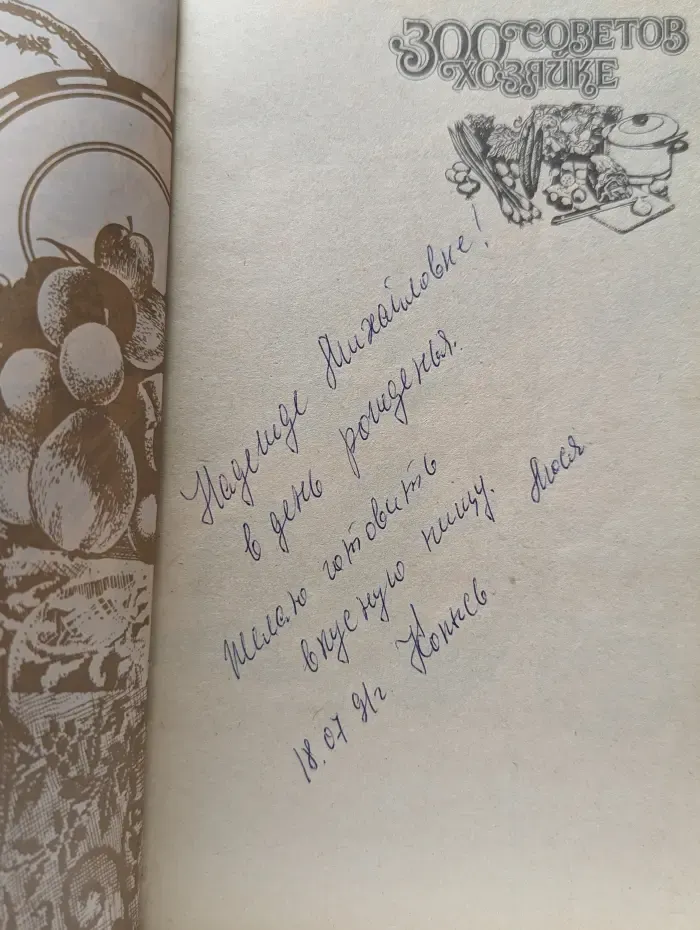 300 СОВЕТОВ
ХОЗЯЙКЕ
Надежде Михайловне!
в день рожденья.
Желаю готовить
вкусную пищу. Люся
18.07 91г Копысь.